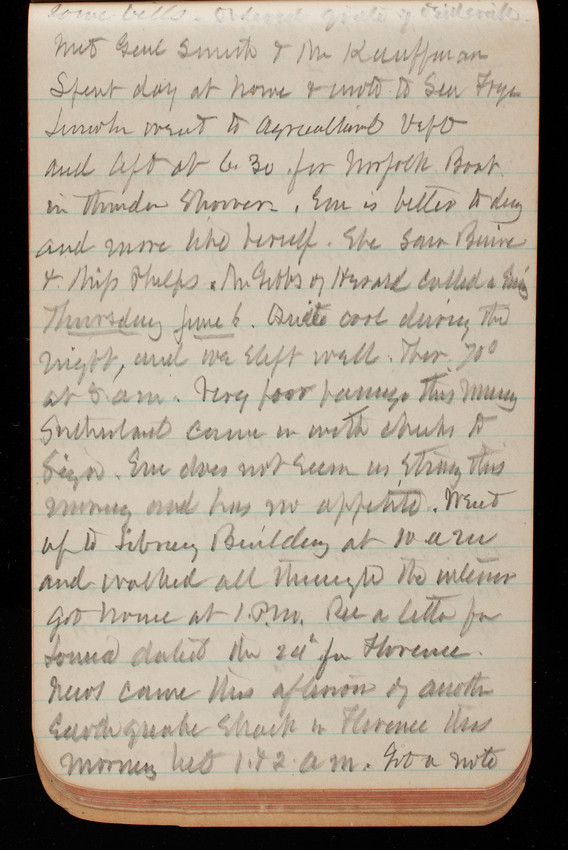 some bells. Ordered grate of
Met Genl Smith & Mr Kauffman
Spent day at home & wrote to Sen Frye
Lincoln went to Agricultural Dept
and left at 6.30 for Norfolk Boat
in thunder Shower. Em is better to day
and more like herself. She saw
& Miss Phelps. Mr Gibbs of Herald called in Evg
Thursday June 6. Quite cool during the
night, and we slept well. Ther. 70°
at 8 am. Very poor this Morng
Sutherland came in with checks to
Sign. Em does not seem as strong this
morning and has no appetite. Went
up to Library Building at 10 am
and walked all through the interior
got home at 1 P.M. Rec a letter from
dated the 24" from Florence.
News came this afternoon of another
Earthquake Shock in Florence this
morning bet 1 & 2 a m. Got a note